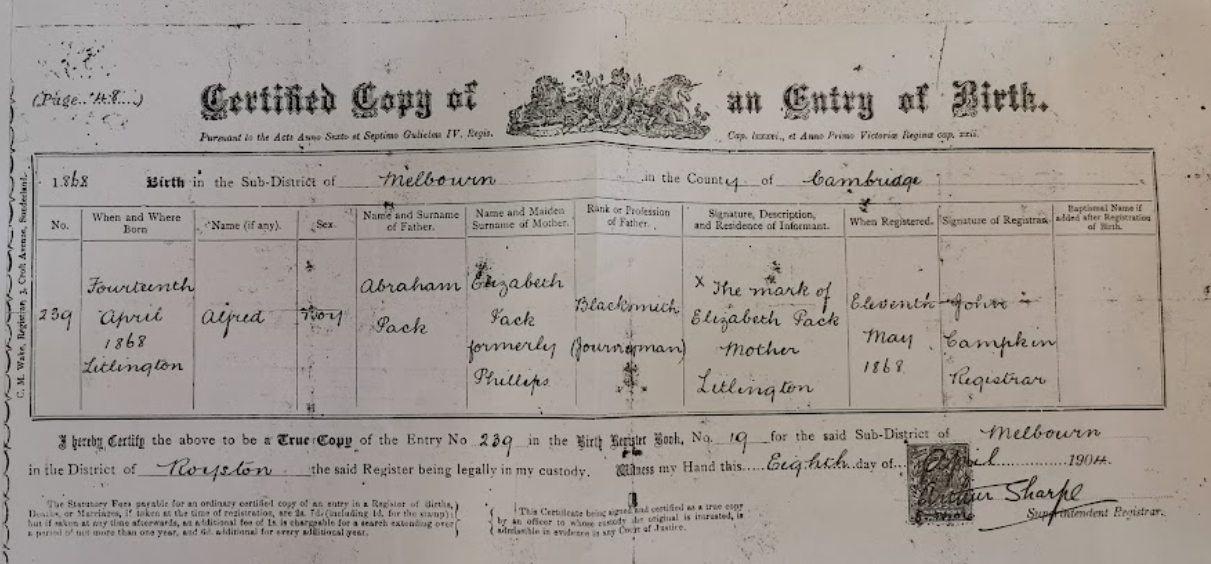 (Page 48)
Certified Copy of an Entry of Birth.
Pursuant to the Acts Anno Sexto et Septimo Gulielmi IV. Regis. Cap. lxxxvi., et Anno Primo Victoriæ Reginæ cap. xxii.
1868 Birth in the Sub-District of Melbourn in the County of Cambridge
No.
When and Where Born
Name (if any).
Sex.
Name and Surname of Father.
Name and Maiden Surname of Mother.
Rank or Profession of Father.
Signature, Description, and Residence of Informant.
When Registered.
Signature of Registrar.
Baptismal Name if added after Registration of Birth.
239
Fourteenth
April
1868
Litlington
Alfred
Boy
Abraham
Pack
Elizabeth
Pack
formerly
Phillips
Blacksmith
(Journeyman)
X The mark of
Elizabeth Pack
Mother
Litlington
Eleventh
May
1868
John
Campkin
Registrar
I hereby Certify the above to be a True Copy of the Entry No 239 in the Birth Register Book, No. 19 for the said Sub-District of Melbourn
in the District of Royston the said Register being legally in my custody. Witness my Hand this Eighth day of April 1904.
Arthur Sharpe
Superintendent Registrar.
The Statutory Fees payable for an ordinary certified copy of an entry in a Register of Births,
Deaths, or Marriages, if taken at the time of registration, are 2s. 7d. (including 1d. for the stamp);
but if taken at any time afterwards, an additional fee of 1s. is chargeable for a search extending over
a period of not more than one year, and 6d. additional for every additional year.
This Certificate being signed and certified as a true copy
by an officer to whose custody the original is intrusted, is
admissible in evidence in any Court of Justice.
C. M. Wake, Registrar, 3, Croft Avenue, Sunderland.